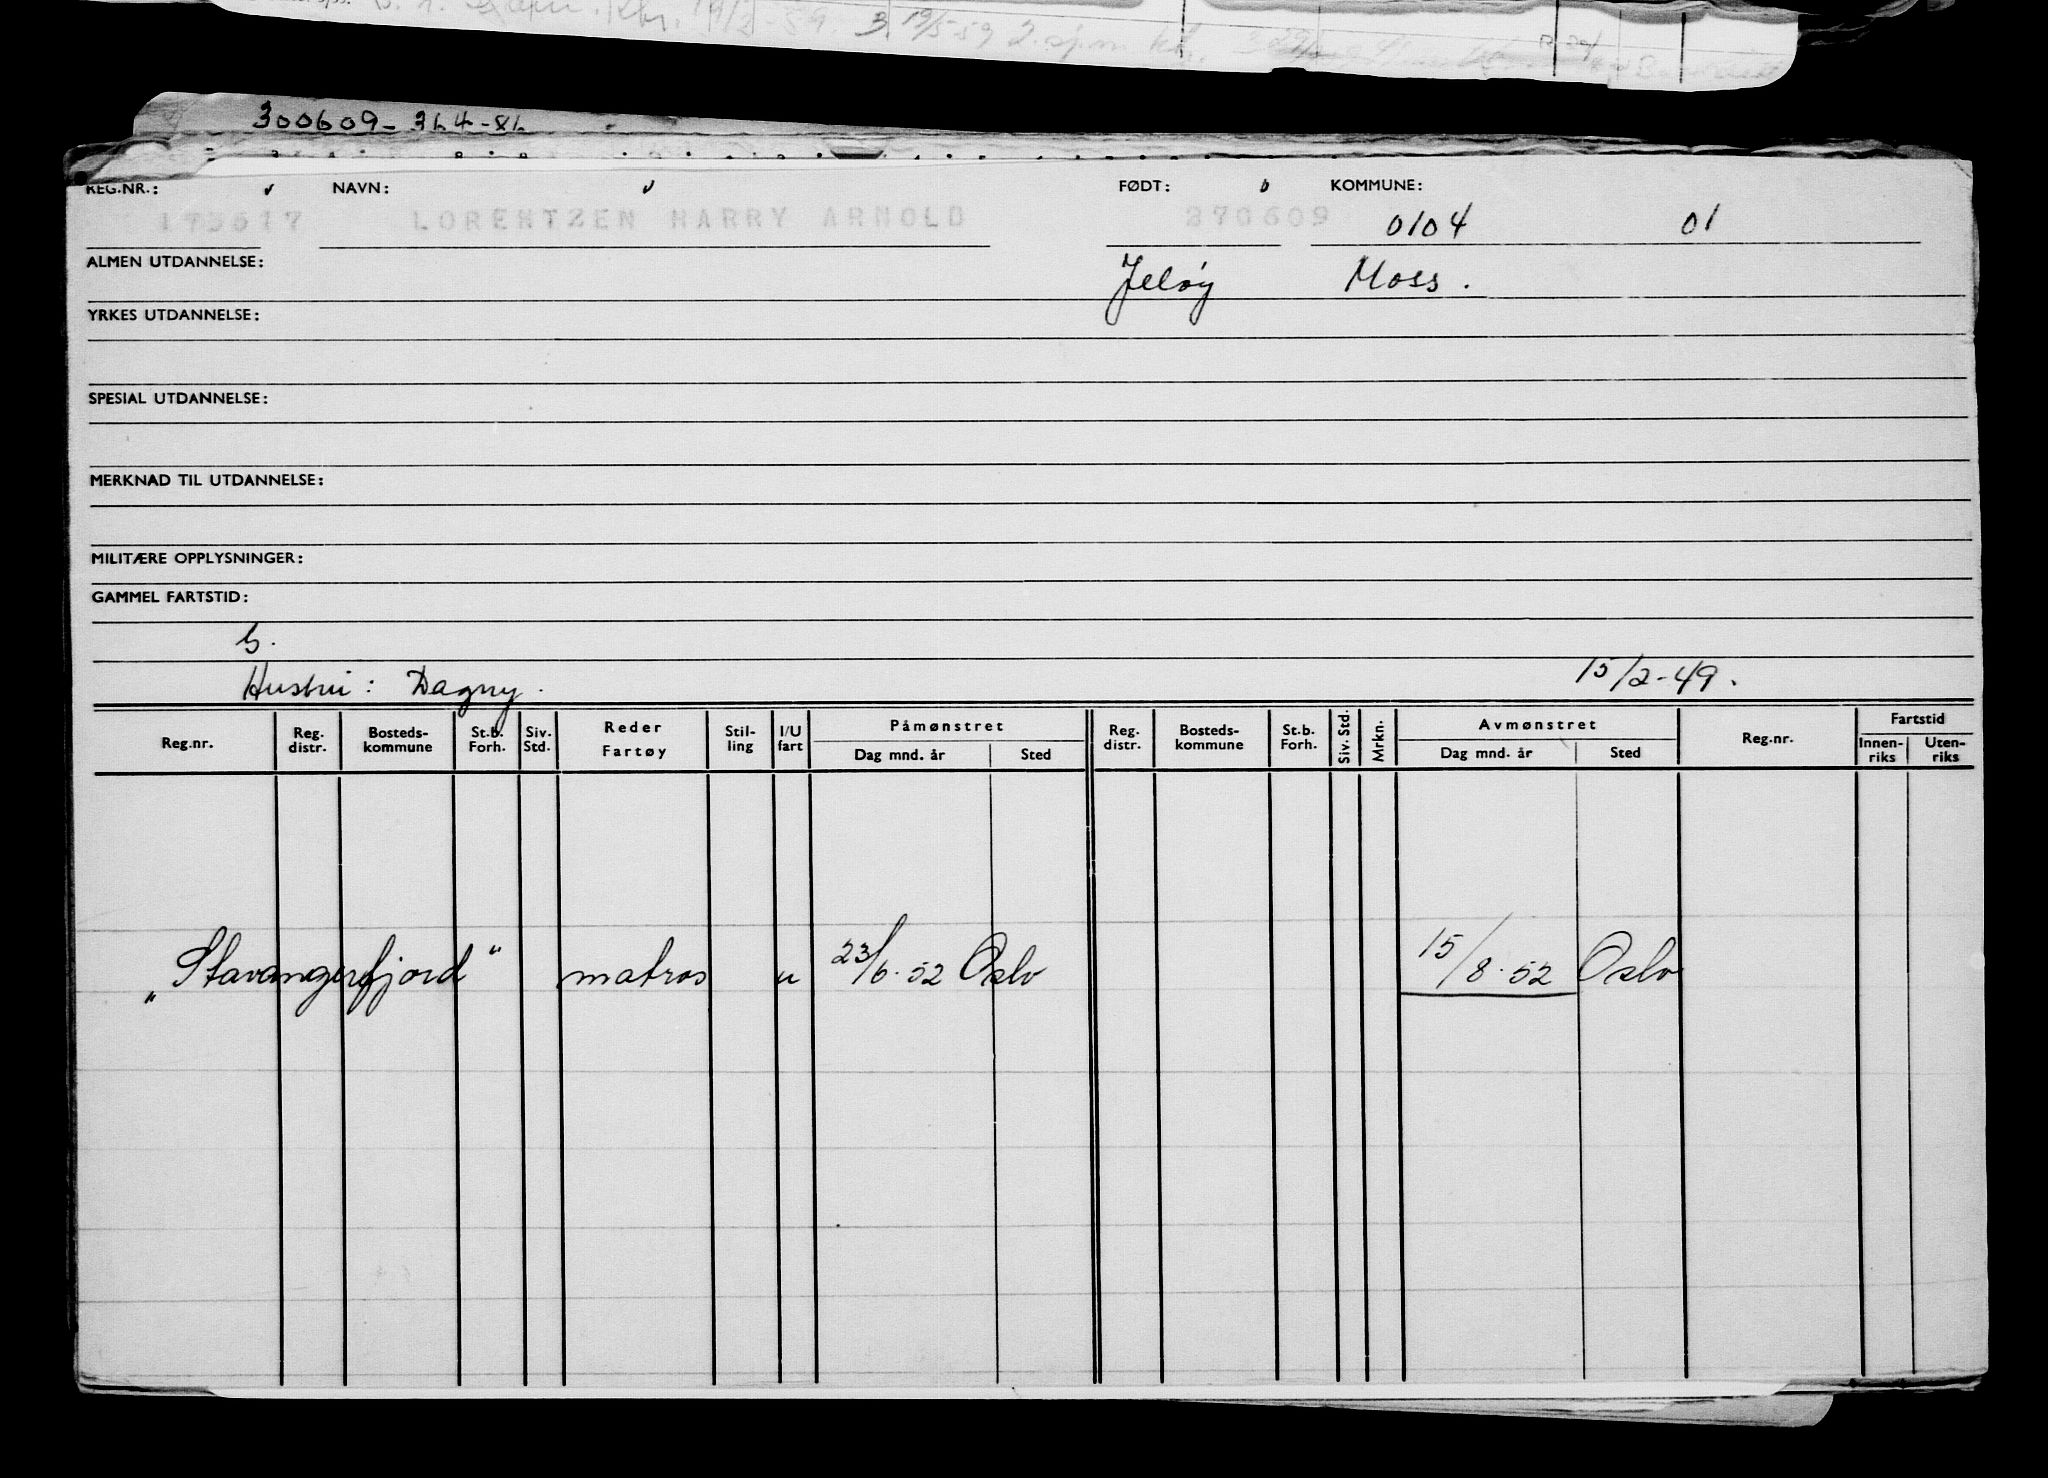 300609-364-86
REG.NR.: NAVN: FØDT: KOMMUNE:
LORENTZEN HARRY ARNOLD 270609 0104 01
ALMEN UTDANNELSE: Jeløy Moss.
YRKES UTDANNELSE:
SPESIAL UTDANNELSE:
MERKNAD TIL UTDANNELSE:
MILITÆRE OPPLYSNINGER:
GAMMEL FARTSTID:
Hustru: Dagny. 15/2-49.
Reg.nr. Reg. distr. Bosteds-kommune St.b. Forh. Siv. Std. Reder Fartøy Stil-ling I/U fart Påmønstret Dag mnd. år Sted Reg. distr. Bosteds-kommune St.b. Forh. Siv. Std. Mrkn. Avmønstret Dag mnd. år Sted Reg.nr. Fartstid Innen-riks Uten-riks
„Stavangerfjord“ matros u 23/6.52 Oslo 15/8.52 Oslo